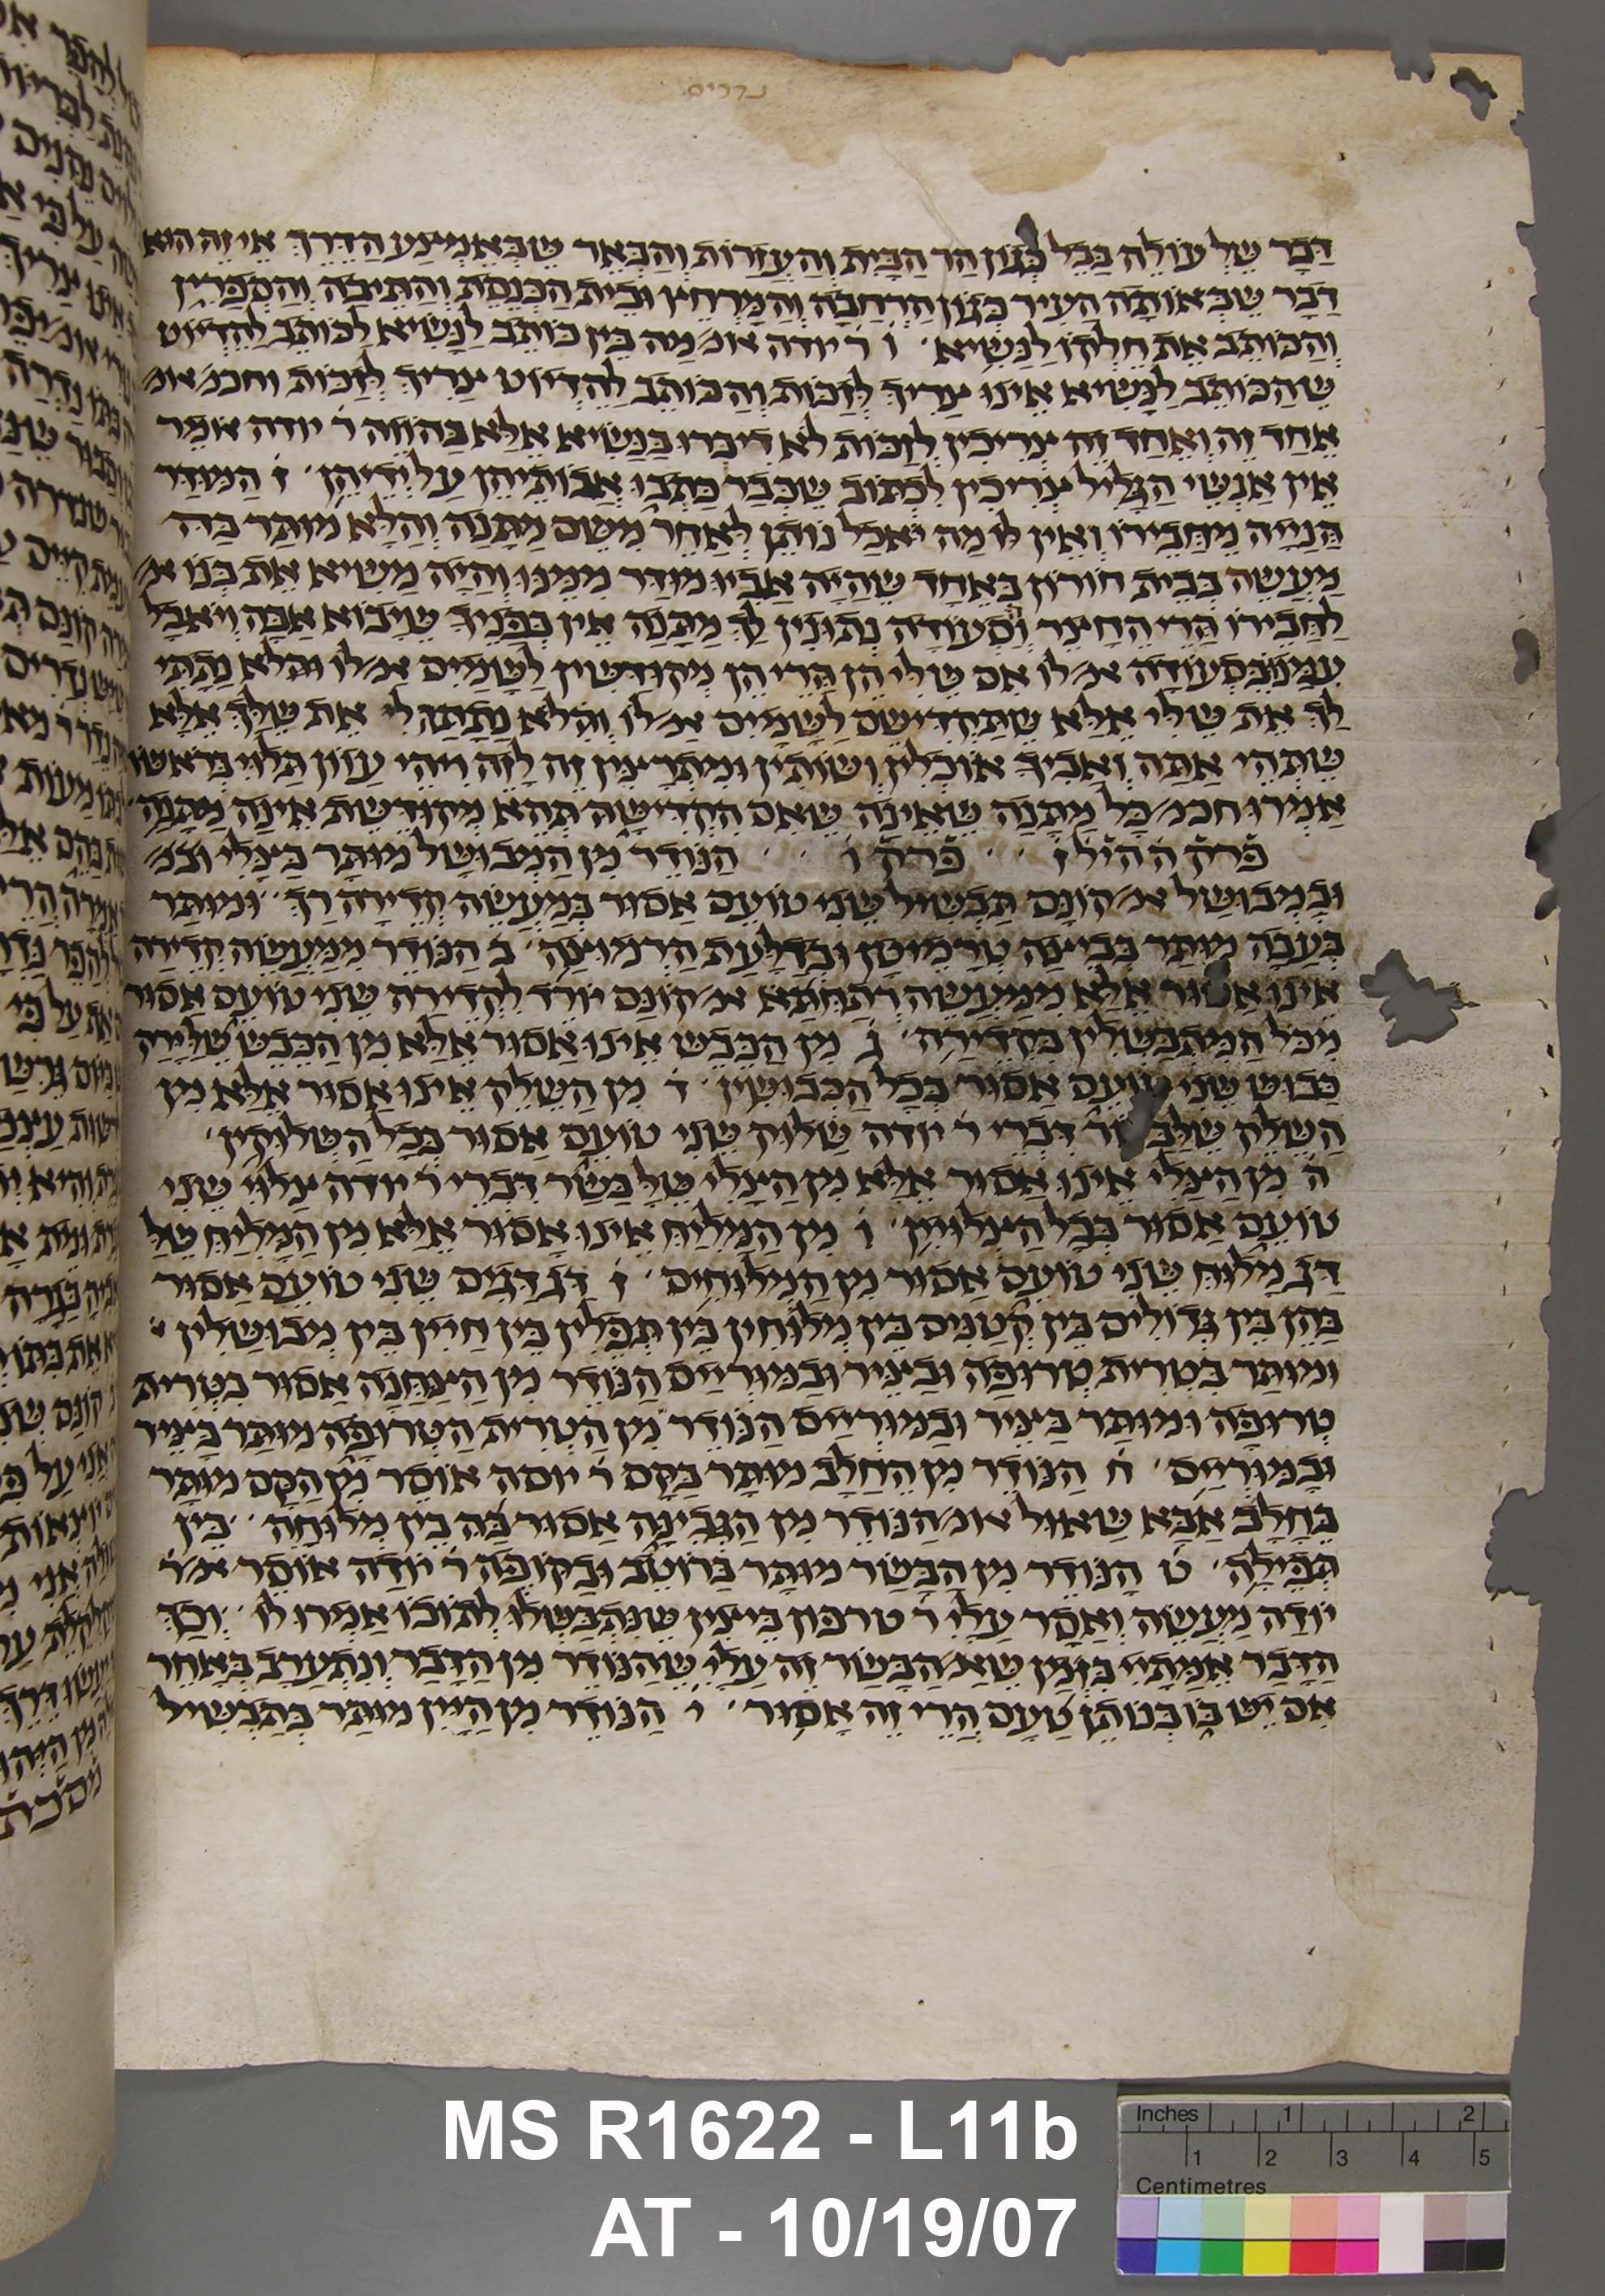 נדרים
דבר של עולה בבל כגון הר הבית והעזרות והבאר שבאמצע הדרך אי זה הוא
דבר שבאותה העיר כגון הרחבה והמרחץ ובית הכנסת והתיבה והספרין
והכותב את חלקו לנשיא ׳ ו ר׳ יודה אומ׳ מה בין כותב לנשיא לכותב להדיוט
שהכותב לנשיא אינו צריך לזכות והכותב להדיוט צריך לזכות וחכמ׳ אומ׳
אחד זה ואחד זה צריכין לזכות לא דיברו בנשיא אלא בהווה ר׳ יודה אומר
אין אנשי הגליל צריכין לכתוב שכבר כתבו אבותיהן על ידיהן ׳ ז המודר
הנייה מחבירו ואין לו מה יאכל נותן לאחר משם מתנה והלא מותר בה
מעשה בבית חורון באחד שהיה אביו מודר ממנו והיה משיא את בנו אמ׳
לחבירו הרי החצר וסעודה נתונין לך מתנה אין בפניך שיבוא אבה ויאכל
עמנו בסעודה אמ׳ לו אם שלי הן הרי הן מקודשין לשמים אמ׳ לו והלא נתתי
לך את שלי אלא שתקדישם לשמים אמ׳ לו והלא נתתה לי את שלך אלא
שתהי אתה ואביך אוכלין ושותין ומתרצין זה לזה ויהי עוון תלוי בראשו
אמרו חכמ׳ כל מתנה שאינה שאם הקדישה תהא מקודשת אינה מתנה ׳
פרק ה ׳ ׳ פרק ו ׳ ׳ הנודר מן המבושל מותר בצלי
ובמבושל אמ׳ קונם תבשיל שני טועם אסור במעשה קדירה רך ׳ ומותר
בעבה מותר בביצה טרמיטן ובדלעת הרמוצה ׳ ב הנודר ממעשה קדירה
אינו אסור אלא ממעשה רתחתא אמ׳ קונם יורד לקדירה שני טועם אסור
מכל המתבשלין בקדירה ׳ ג מן הכבש אינו אסור אלא מן הכבש שלירק
כבוש שני טועם אסור בכל הכבושין ׳ ד מן השלק אינו אסור אלא מן
השלק שלבשר דברי ר׳ יודה שלוק שני טועם אסור בכל השלוקין ׳
ה מן הצלי אינו אסור אלא מן הצלי שלבשר דברי ר׳ יודה צלוי שני
טועם אסור בכל הצלויין ׳ ו מן המליח אינו אסור אלא מן המליח של
דג מלוח שני טועם אסור מן המלוחים ׳ ז דג דגים שני טועם אסור
בהן בין גדולים בין קטנים בין מלוחין בין תפלין בין חיין בין מבושלין
ומותר בטרית טרופה ובציר ובמורייס הנודר מן הצחנה אסור בטרית
טרופה ומותר בציר ובמורייס הנודר מן הטרית הטרופה מותר בציר
ובמורייס ׳ ח הנודר מן החלב מותר בקם ר׳ יוסה אוסר מן הקם מותר
בחלב אבא שאול אומ׳ הנודר מן הגבינה אסור בה בין מלוחה ׳ בין
תפילה ׳ ט הנודר מן הבשר מותר ברוטב ובקופה ר׳ יודה אוסר אמ׳ ר׳
יודה מעשה ואסר עלי ר׳ טרפון ביצין שנתבשלו לתוכו אמרו לו ׳ וכך
הדבר אמתיי בזמן שאמ׳ הבשר זה עלי שהנודר מן הדבר ונתערב באחר
אם יש בו בנותן טעם הרי זה אסור ׳ י הנודר מן היין מותר בתבשיל
MS R1622 - L11b
AT - 10/19/07
Inches 1 2
1 2 3 4 5
Centimetres